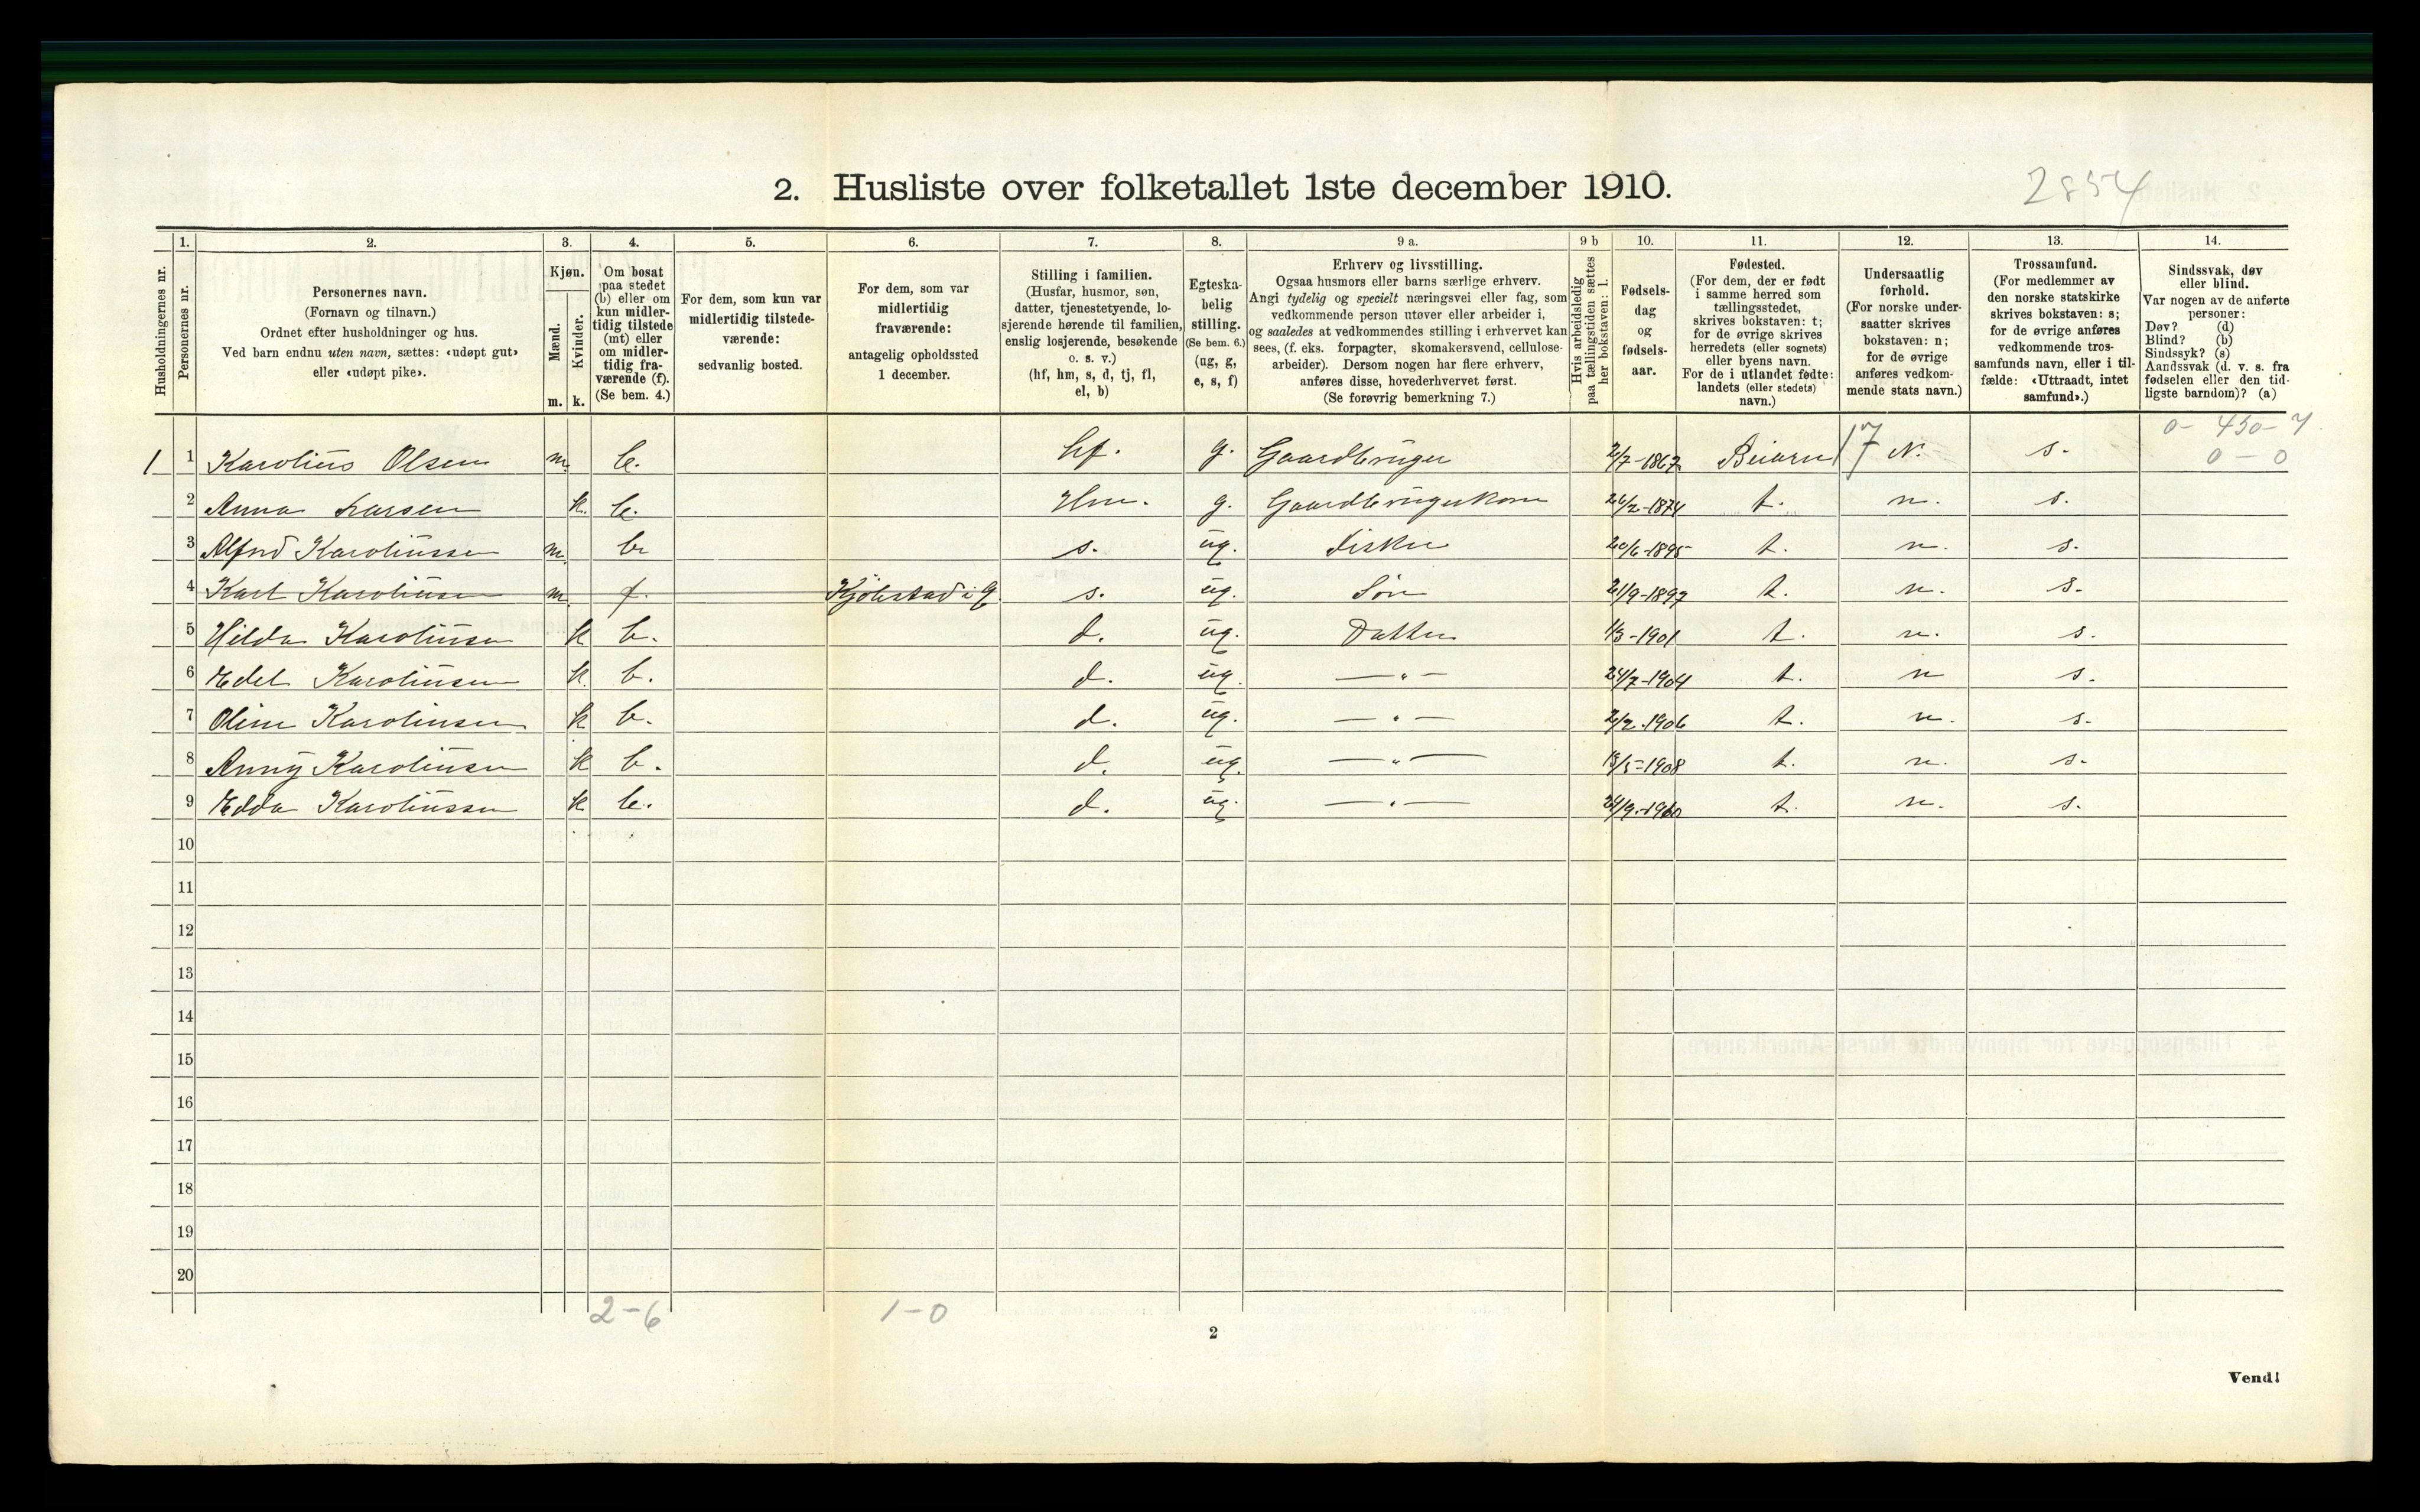 2. Husliste over folketallet 1ste december 1910.
2854
1. 2. 3. 4. 5. 6. 7. 8. 9 a. 9 b 10. 11. 12. 13. 14.
Husholdningernes nr.
Personernes nr.
Personernes navn.
(Fornavn og tilnavn.)
Ordnet efter husholdninger og hus.
Ved barn endnu uten navn, sættes: «udøpt gut»
eller «udøpt pike».
Kjøn.
Mænd.
Kvinder.
m. k.
Om bosat
paa stedet
(b) eller om
kun midler-
tidig tilstede
(mt) eller
om midler-
tidig fra-
værende (f).
(Se bem. 4.)
For dem, som kun var
midlertidig tilstede-
værende:
sedvanlig bosted.
For dem, som var
midlertidig
fraværende:
antagelig opholdssted
1 december.
Stilling i familien.
(Husfar, husmor, søn,
datter, tjenestetyende, lo-
sjerende hørende til familien,
enslig losjerende, besøkende
o. s. v.)
(hf, hm, s, d, tj, fl,
el, b)
Egteska-
belig
stilling.
(Se bem. 6.)
(ug, g,
e, s, f)
Erhverv og livsstilling.
Ogsaa husmors eller barns særlige erhverv.
Angi tydelig og specielt næringsvei eller fag, som
vedkommende person utøver eller arbeider i,
og saaledes at vedkommendes stilling i erhvervet kan
sees, (f. eks. forpagter, skomakersvend, cellulose-
arbeider). Dersom nogen har flere erhverv,
anføres disse, hovederhvervet først.
(Se forøvrig bemerkning 7.)
Hvis arbeidsledig
paa tællingstiden sættes
her bokstaven: l.
Fødsels-
dag
og
fødsels-
aar.
Fødested.
(For dem, der er født
i samme herred som
tællingsstedet,
skrives bokstaven: t;
for de øvrige skrives
herredets (eller sognets)
eller byens navn.
For de i utlandet fødte:
landets (eller stedets)
navn.)
Undersaatlig
forhold.
(For norske under-
saatter skrives
bokstaven: n;
for de øvrige
anføres vedkom-
mende stats navn.)
Trossamfund.
(For medlemmer av
den norske statskirke
skrives bokstaven: s;
for de øvrige anføres
vedkommende tros-
samfunds navn, eller i til-
fælde: «Uttraadt, intet
samfund».)
Sindssvak, døv
eller blind.
Var nogen av de anførte
personer:
Døv? (d)
Blind? (b)
Sindssyk? (s)
Aandssvak (d. v. s. fra
fødselen eller den tid-
ligste barndom)? (a)
1 1 Karolius Olsen m. b. hf. g. Gaardbruger 2/7-1867 Beiarn 17 N. s.
0 - 0
2 Anna Larsen k. b. Hm. g. Gaardbrugerkone t. n. s.
3 Alfred Karoliussen m. b. s. ug. Fisker 20/6-1895 t. n. s.
4 Karl Karoliusen m. f. s. ug. Søn 21/9-1897 t. n. s.
5 Hilda Karoliusen k b. d. ug. Datter 1/3-1901 t. n. s.
6 Edel Karoliusen k. b. d. ug. — " — 24/7-1904 t. n s.
7 Oline Karoliusen k b. d. ug. — " — 2/2-1906 t. n. s.
8 Anny Karoliusen k b. d. ug. — " — t. n. s.
9 Edda Karoliussen k b. d. ug. — " — t. n. s.
10
11
12
13
14
15
16
17
18
19
20
2-6 1-0
2
Vend!